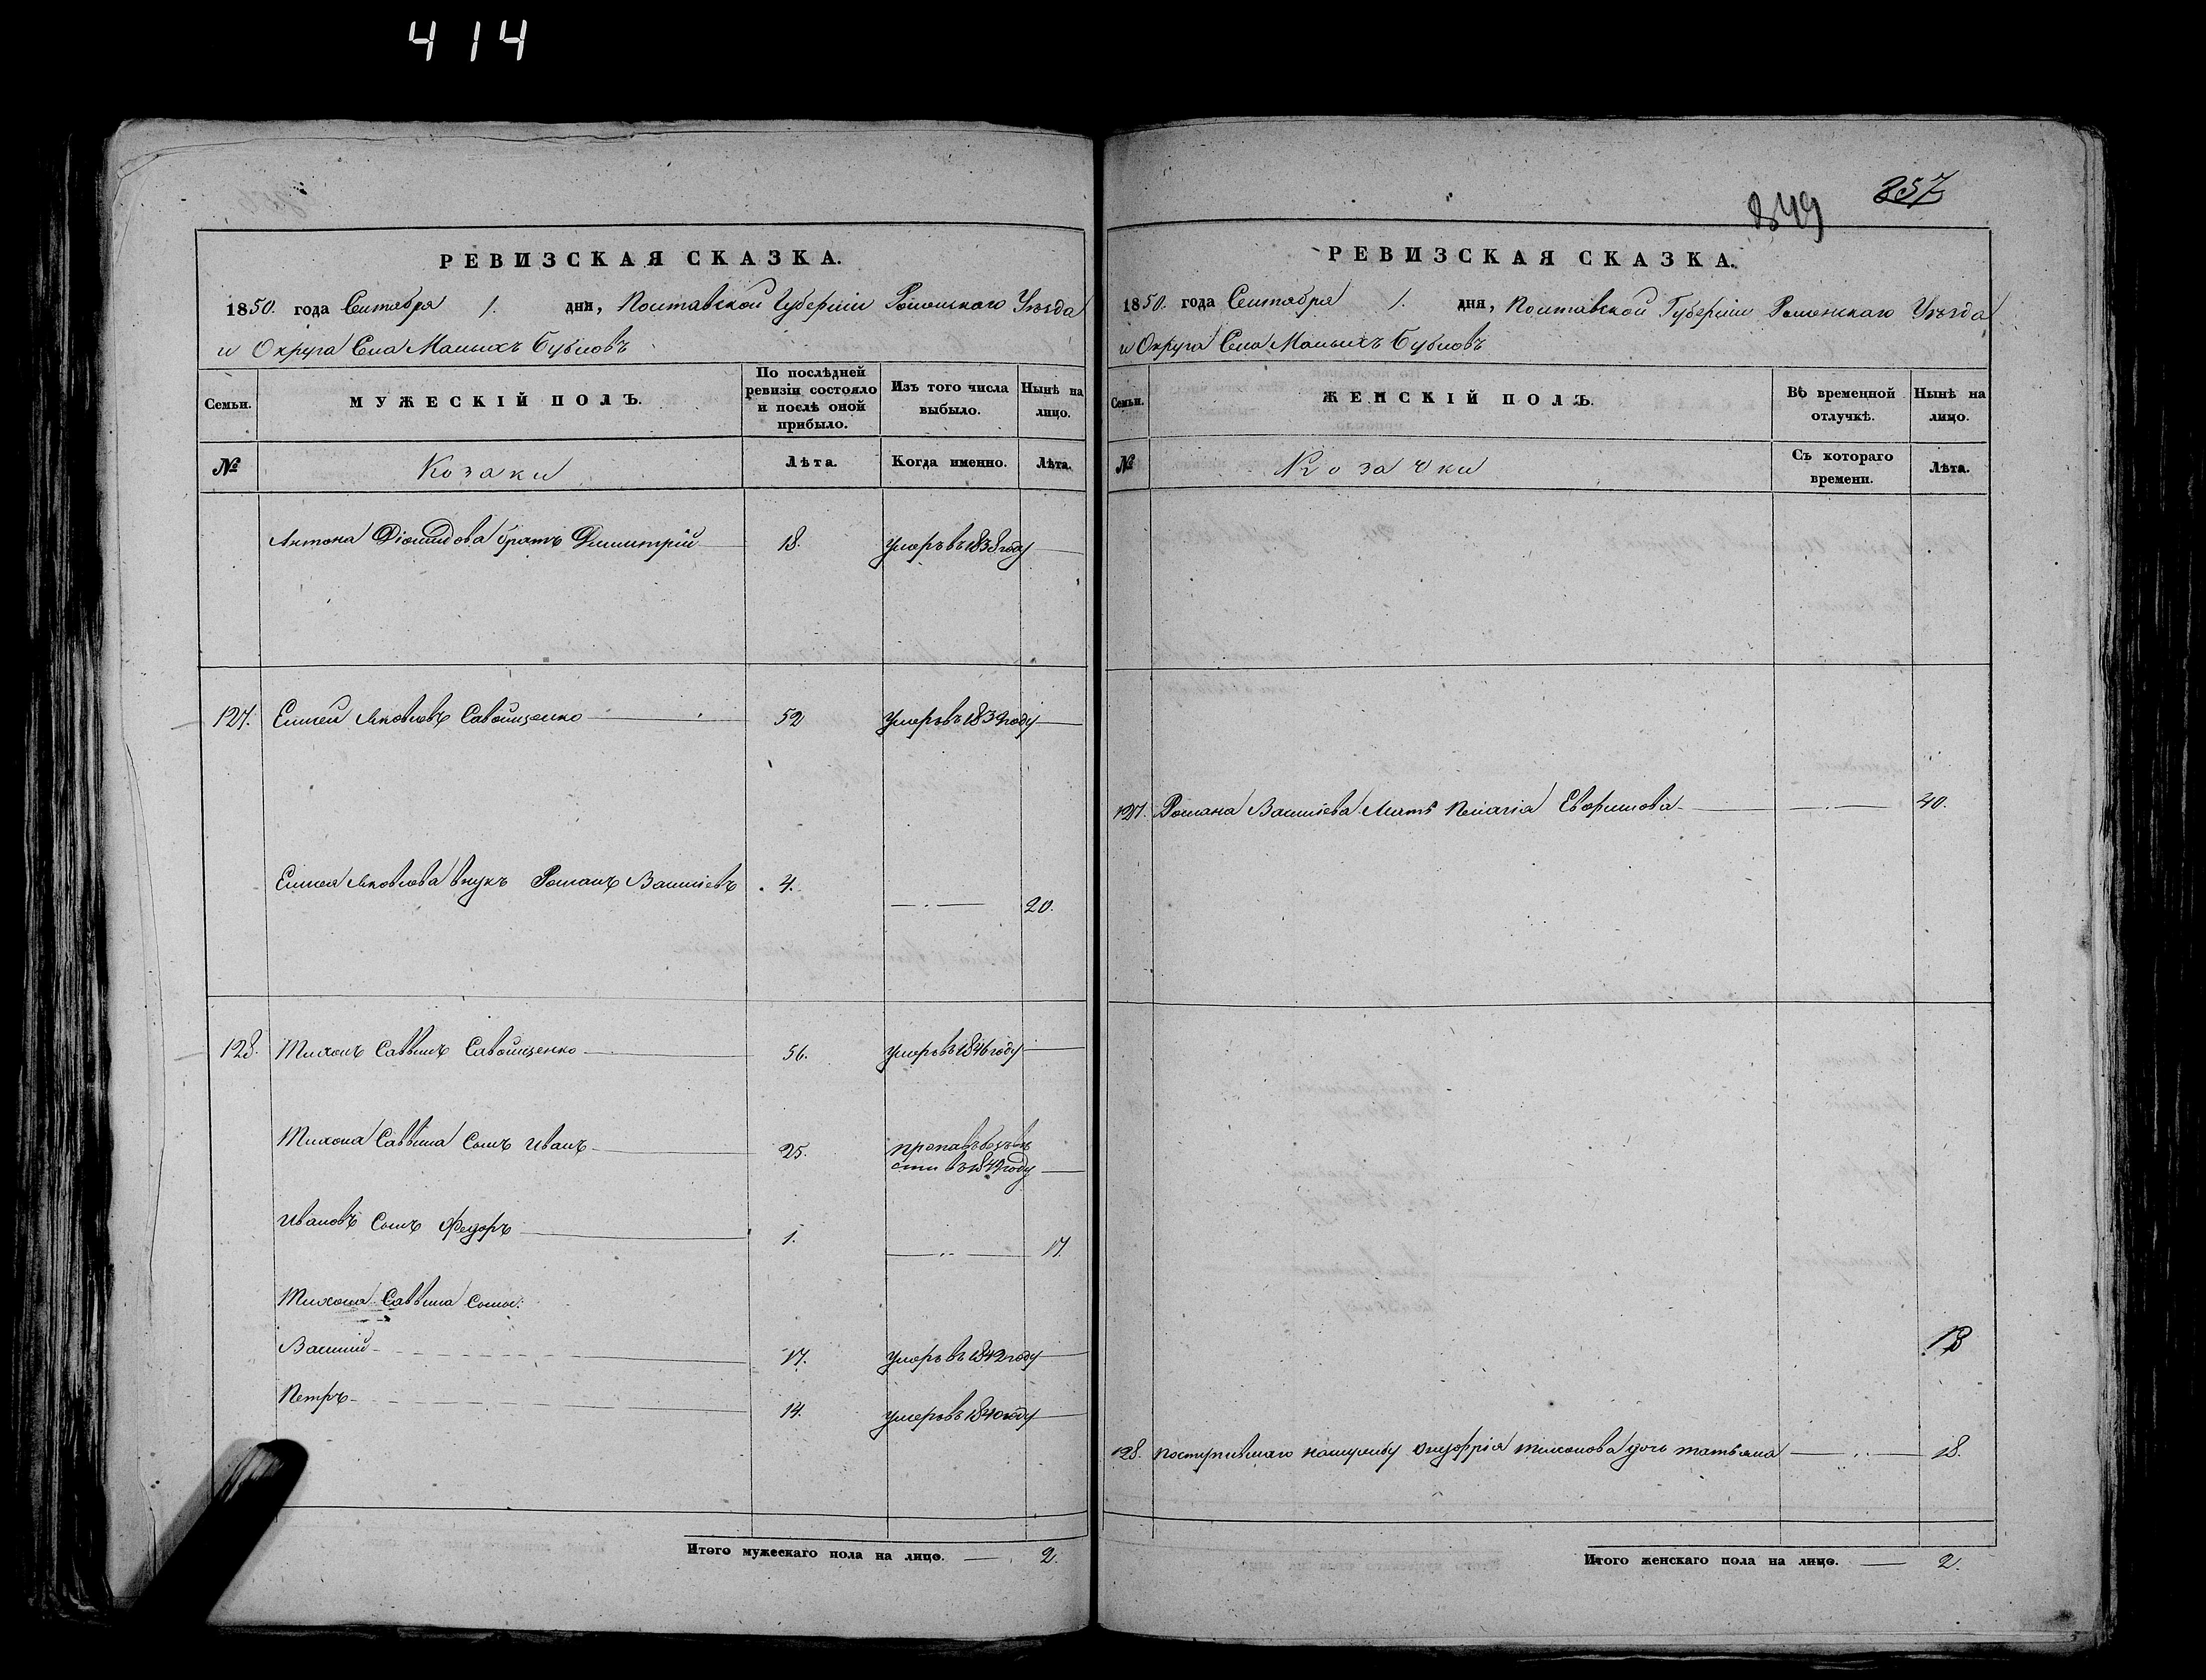 414
РЕВИЗСКАЯ СКАЗКА.
1850. года Сентября 1. дня, Полтавской Губерніи Роменскаго Уѣзда
и Округа Села Малыхъ Бубновъ
Семьи.
МУЖЕСКІЙ ПОЛЪ.
По послѣдней ревизіи состояло и послѣ оной прибыло.
Изъ того числа выбыло.
Нынѣ на лицо.
№
Козаки
Лѣта.
Когда именно.
Лѣта.
Антона Діомидова братъ Димитрій 18. умеръ въ 1838 году
127. Елисей Яковлевъ Савощенко 52 умеръ въ 1839 году
Елисея Яковлева внукъ Романъ Василіевъ 4. 20.
128. Тихонъ Саввинъ Савощенко 56. умеръ въ 1846 году
Тихона Саввина Сынъ Иванъ 25. пропавъ безъ вѣ
сти въ году
Ивановъ Сынъ Федоръ 1. 17.
Тихона Саввина Сыны:
Василій 17. умеръ въ 1842 году
Петръ 14. умеръ въ 1840 году
Итого мужескаго пола на лицо. 2.
257
849
РЕВИЗСКАЯ СКАЗКА.
1850. года Сентября 1. дня, Полтавской Губерніи Роменскаго Уѣзда
и Округа Села Малыхъ Бубновъ
Семьи.
ЖЕНСКІЙ ПОЛЪ.
Въ временной отлучкѣ.
Нынѣ на лицо.
№
Козачки
Съ котораго времени.
Лѣта.
127. Романа Василіева Мать Пелагія Евфимова 40.
128. поступившаго на службу Онуфрія Тихонова дочь Татьяна 18.
Итого женскаго пола на лицо. 2.